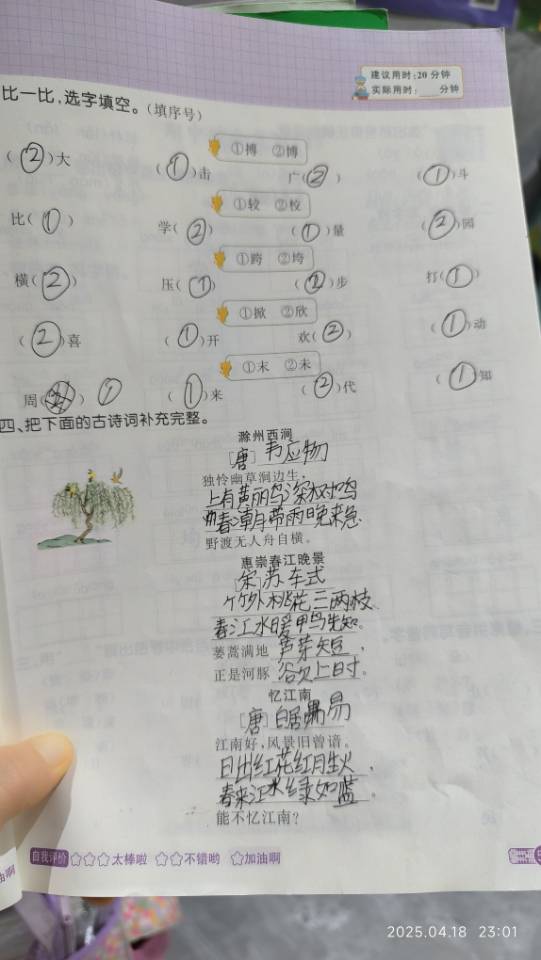 建议用时:20分钟
实际用时: 分钟
比一比,选字填空。(填序号)
①搏 ②博
(②)大 (①)击 广(②) (①)斗
①较 ②校
比(①) 学(②) (①)量 (②)园
①跨 ②垮
横(②) 压(①) (①)步 打(①)
①掀 ②欣
(②)喜 (①)开 欢(②) (①)动
①末 ②未
周( ) ① (①)来 (②)代 (①)知
四、把下面的古诗词补充完整。
滁州西涧
[唐] 韦应物
独怜幽草涧边生,
上有黄丽鸟深权鸣
春潮带雨晚来急
野渡无人舟自横。
惠崇春江晚景
[宋] 苏车式
竹外桃花三两枝、
春江水暖鸭先知。
蒌蒿满地 芦芽短 ,
正是河豚 欲上时 。
忆江南
[唐] 白居易
江南好,风景旧曾谙。
日出红花红月生火 ,
春来江水绿如蓝 。
能不忆江南?
自我评价 ☆☆☆太棒啦 ☆☆不错哟 ☆加油啊
油啊
2025.04.18 23:01